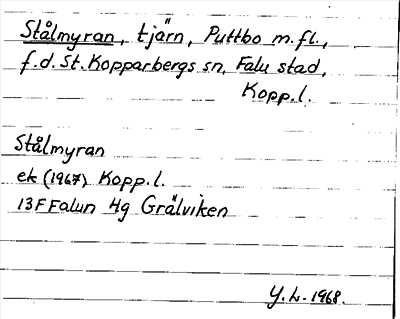 Stålmyran, tjärn, Puttbo m.fl.,
f.d. St. Kopparbergs sn, Falu stad,
Kopp.l.
Stålmyran
ek (1967) Kopp.l.
13F Falun 4g Grålviken
Y.L. 1968.